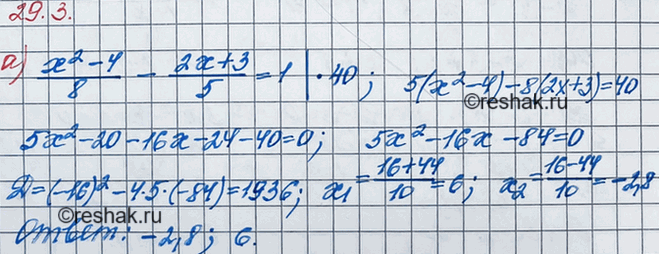 29.3.
а) (x² - 4)/8 - (2x + 3)/5 = 1 | · 40; 5(x² - 4) - 8(2x + 3) = 40
©reshak.ru
5x² - 20 - 16x - 24 - 40 = 0; 5x² - 16x - 84 = 0
D = (-16)² - 4·5·(-84) = 1936; x₁ = (16 + 44)/10 = 6; x₂ = (16 - 44)/10 = -2,8
©reshak.ru
Ответ: -2,8; 6.